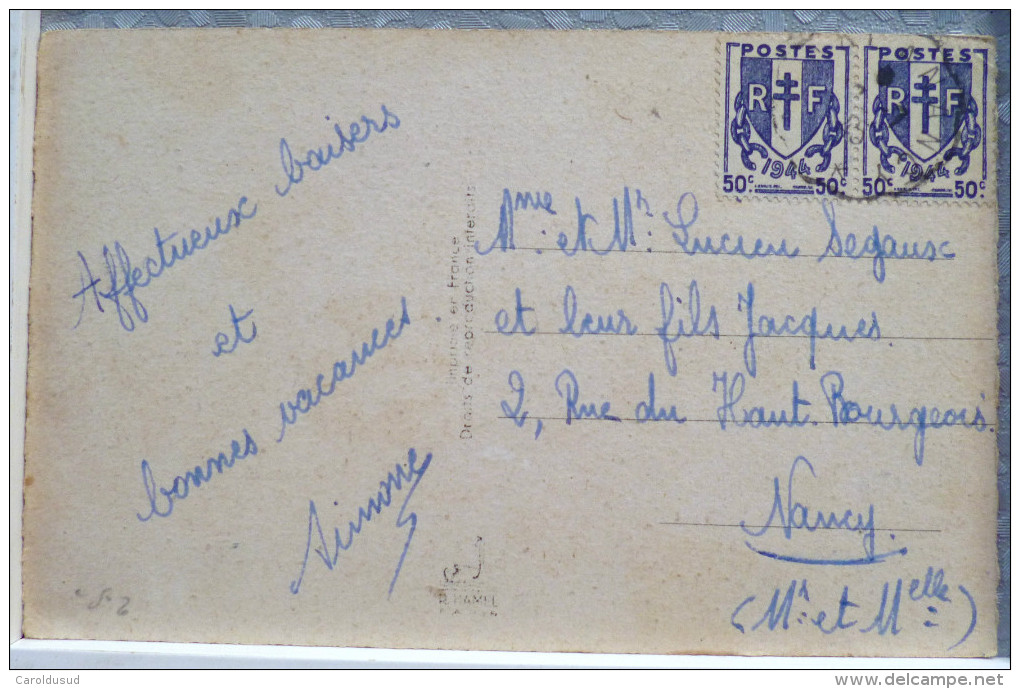 POSTES POSTES
R F R F
1944 1944
50c 50c 50c 50c
Affectueux baisers
et
bonnes vacances.
Simone
Imprimé en France
Droits de reproduction interdits
Mme et Mr Lucien Segaux
et leur fils Jacques.
2, Rue du Haut-Bourgeois.
Nancy.
(Mr et Melle)
HAMEL
Caroldusud
www.delcampe.net